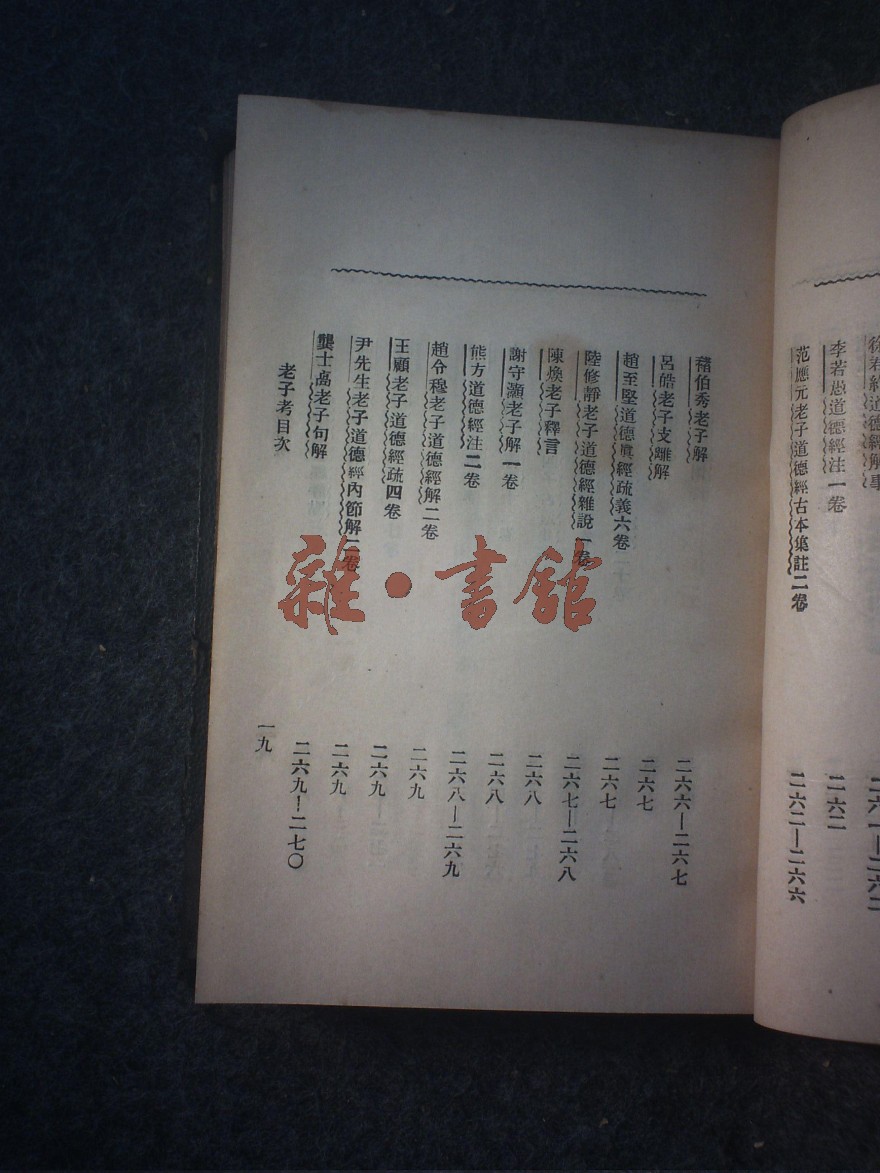 李若愚道德經注一卷 二六二
范應元老子道德經古本集註二卷 二六二—二六六
褚伯秀老子解 二六六—二六七
呂皓老子支離解 二六七
趙至堅道德眞經疏義六卷 二六七
陸修靜老子道德經雜說一卷 二六七—二六八
陳煥老子釋言 二六八
謝守灝老子解一卷 二六八
熊方道德經注二卷 二六八—二六九
趙令穆老子道德經解二卷 二六九
王顧老子道德經疏四卷 二六九
尹先生老子道德經內節解二卷 二六九
龔士卨老子句解 二六九—二七〇
老子考目次 一九
雜·書館